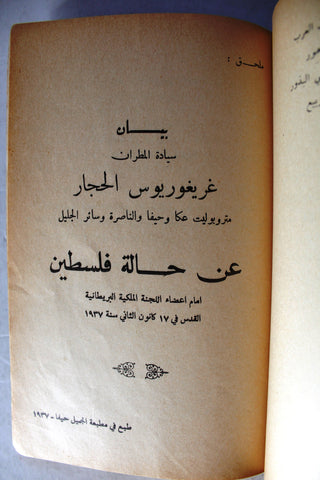 ملحق :
بيــان
سيادة المطران
غريغوريوس الحجار
متروبوليت عكا وحيفا والناصرة وسائر الجليل
عن حــالة فلسطين
امام اعضاء اللجنة الملكية البريطانية
القدس في ١٧ كانون الثاني سنة ١٩٣٧
طبع في مطبعة الجميل حيفا - ١٩٣٧
العرب